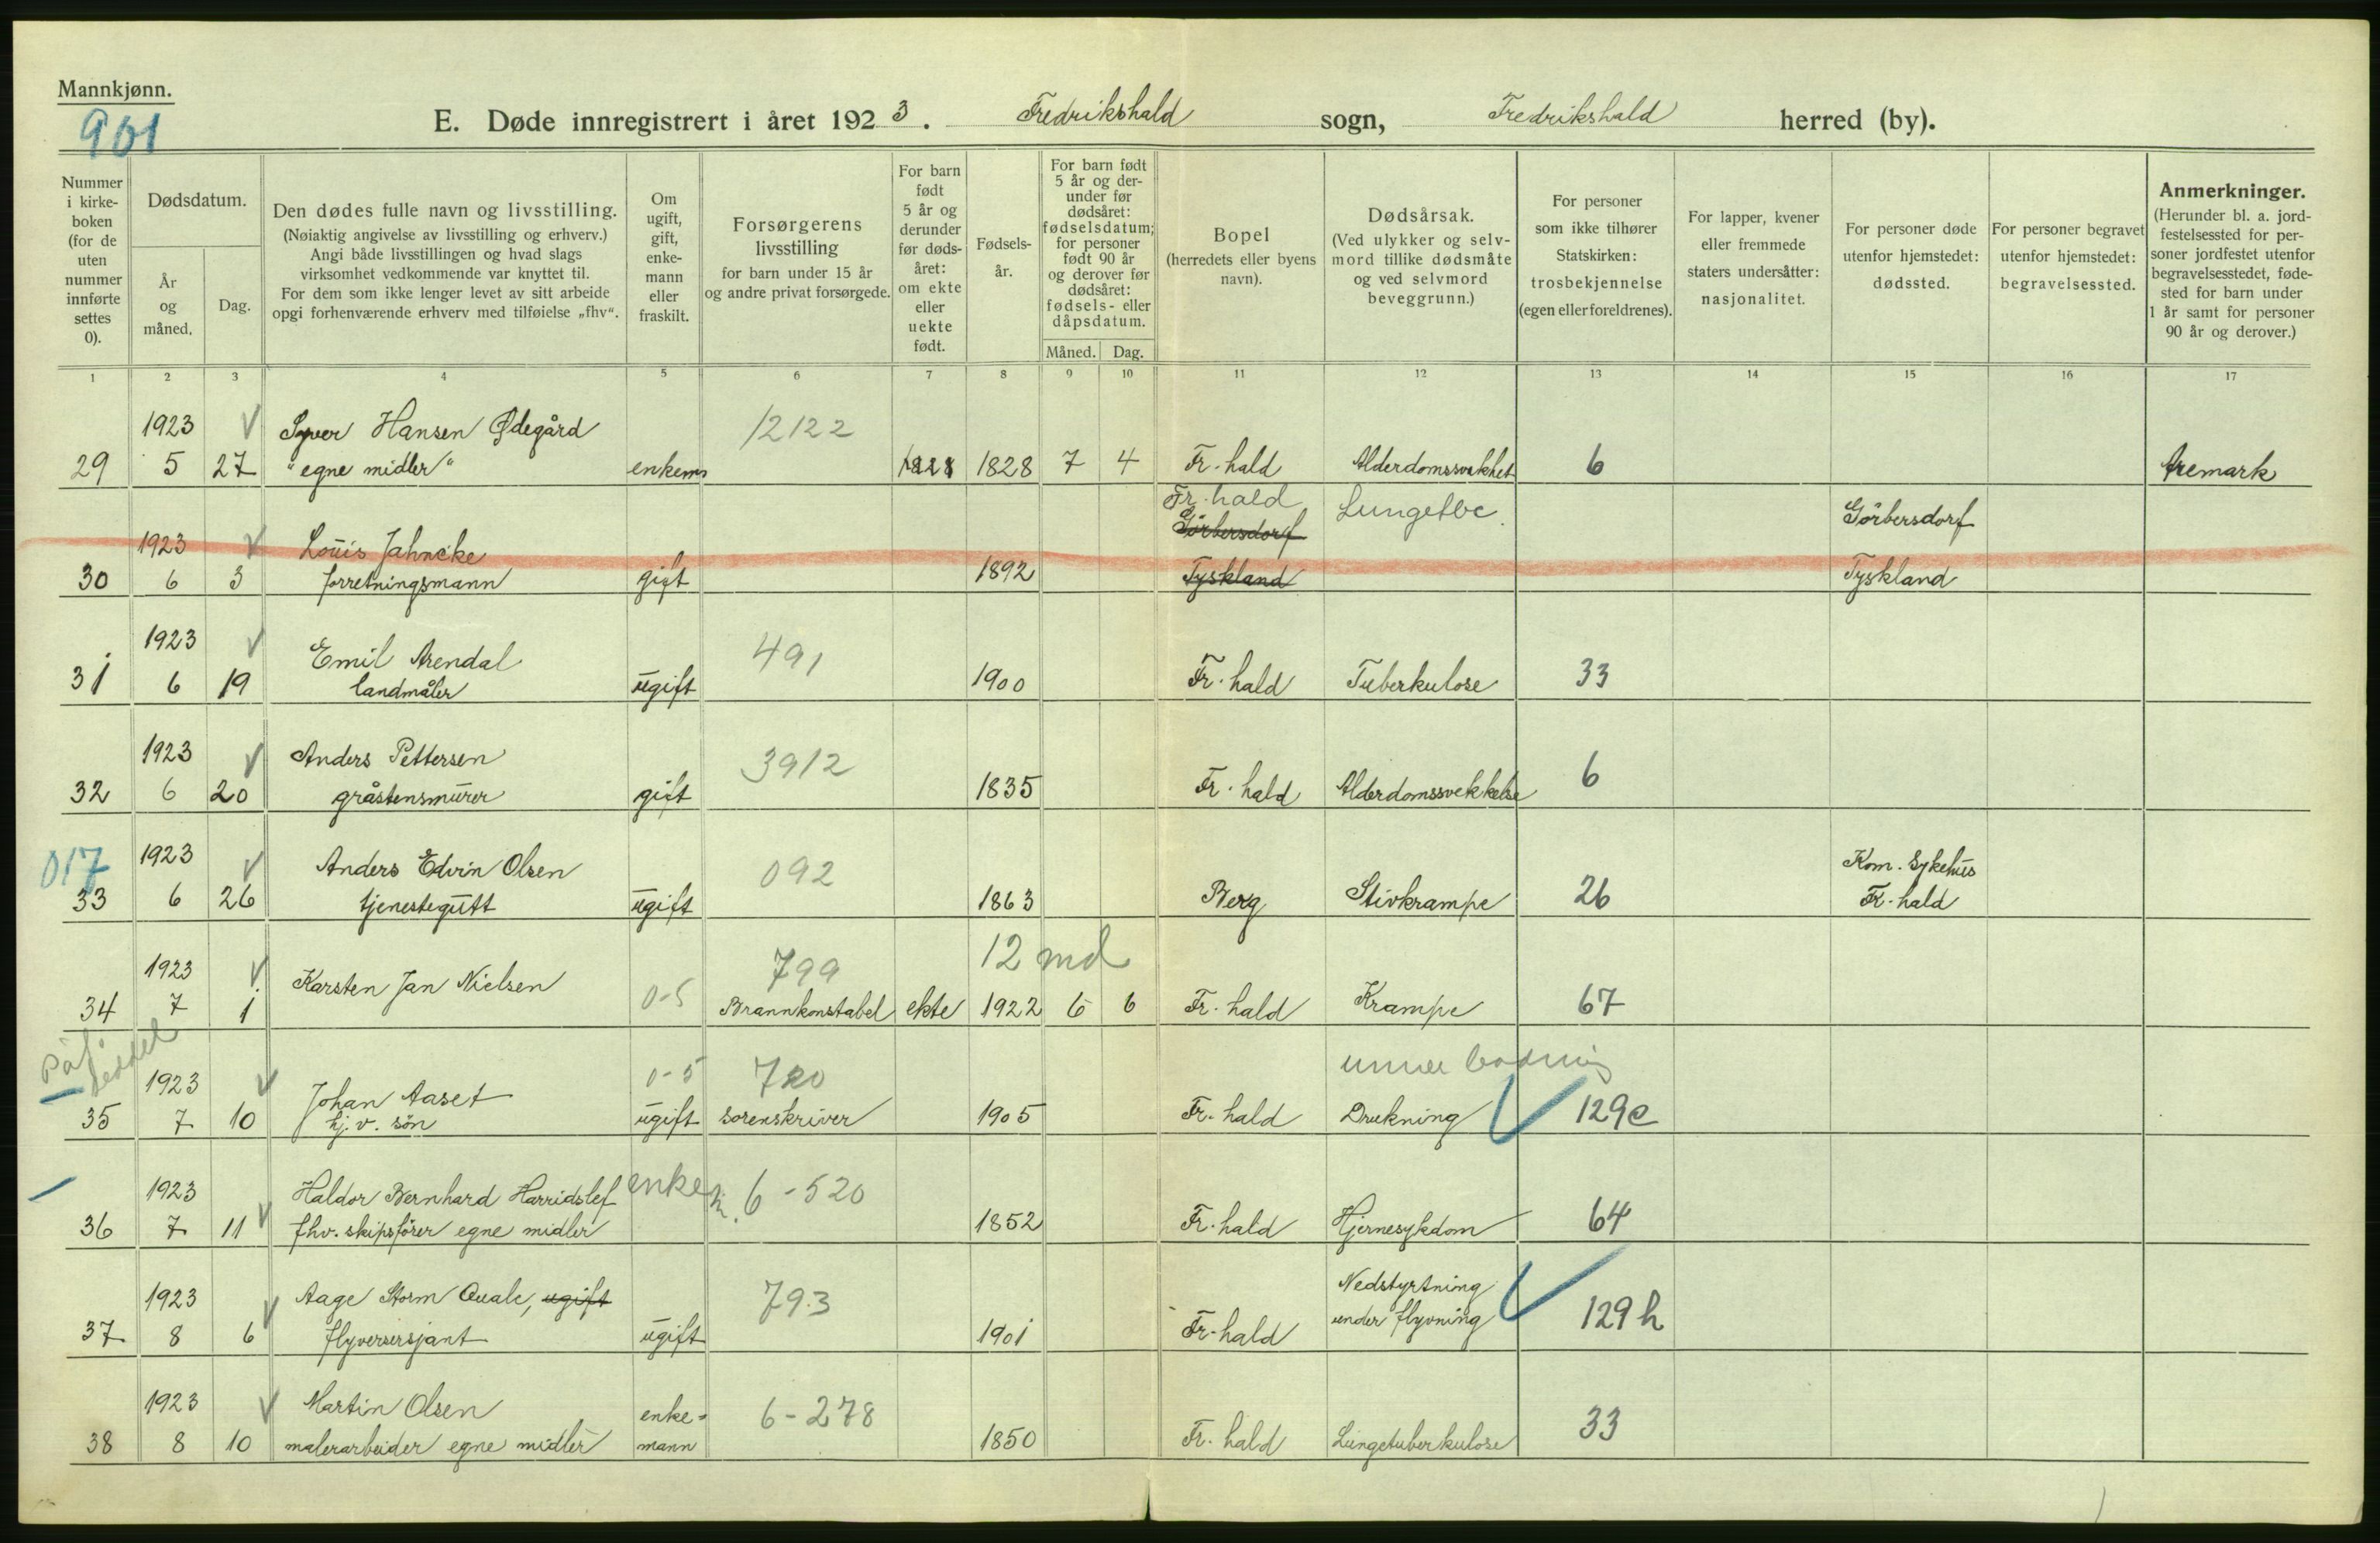 Mannkjønn.
901
E. Døde innregistrert i året 1923. Fredrikshald sogn, Fredrikshald herred (by).
Nummer i kirke- boken (for de uten nummer innførte settes 0).
Dødsdatum.
År og måned.
Dag.
Den dødes fulle navn og livsstilling.
(Nøiaktig angivelse av livsstilling og erhverv.)
Angi både livsstillingen og hvad slags
virksomhet vedkommende var knyttet til.
For dem som ikke lenger levet av sitt arbeide
opgi forhenværende erhverv med tilføielse „fhv“.
Om ugift, gift, enke- mann eller fraskilt.
Forsørgerens livsstilling
for barn under 15 år
og andre privat forsørgede.
For barn født 5 år og derunder før døds- året: om ekte eller uekte født.
Fødsels- år.
For barn født 5 år og der- under før dødsåret: fødselsdatum; for personer født 90 år og derover før dødsåret: fødsels- eller dåpsdatum.
Måned. Dag.
Bopel
(herredets eller byens navn).
Dødsårsak.
(Ved ulykker og selv- mord tillike dødsmåte og ved selvmord beveggrunn.)
For personer som ikke tilhører Statskirken: trosbekjennelse (egen eller foreldrenes).
For lapper, kvener eller fremmede staters undersåtter: nasjonalitet.
For personer døde utenfor hjemstedet: dødssted.
For personer begravet utenfor hjemstedet: begravelsessted.
Anmerkninger.
(Herunder bl. a. jord- festelsessted for per- soner jordfestet utenfor begravelsesstedet, føde- sted for barn under 1 år samt for personer 90 år og derover.)
1 2 3 4 5 6 7 8 9 10 11 12 13 14 15 16 17
1923 Syver Hansen Ødegård 12122
29 5 27 "egne midler" enkem 1828 1828 7 4 Fr.hald Alderdomssvakhet 6 Aremark
Fr. hald Lungetbc.
1923 Louis Jahncke Görbersdorf Görbersdorf
30 6 3 forretningsmann gift 1892 Tyskland Tyskland
1923 Emil Arendal 491
31 6 19 landmåler ugift 1900 Fr. hald Tuberkulose 33
1923 Anders Pettersen 3912
32 6 20 gråstensmurer gift 1835 Fr. hald Alderdomssvekkelse 6
017 1923 Anders Edvin Olsen 092 Kom. Sykehus
33 6 26 tjenestegutt ugift 1863 Berg Stivkrampe 26 Fr. hald
1923 Karsten Jan Nielsen 799 12 md
34 7 1 0-5 Brannkonstabel ekte 1922 6 6 Fr. hald Krampe 67
På seddel
1923 Johan Aaset 0-5 720 under badning
35 7 10 hj. v. sön ugift sorenskriver 1905 Fr. hald Drukning 129c
1923 Haldor Bernhard Harridslef enkem. 6-520
36 7 11 fhv. skipsfører egne midler 1852 Fr. hald Hjernesykdom 64
1923 Aage Storm Quale, ugift 793 Nedstyrtning
37 8 6 flyversersjant ugift 1901 Fr-hald under flyvning 129h
1923 Martin Olsen enke- 6-278
38 8 10 malerarbeider egne midler mann 1850 Fr. hald Lungetuberkulose 33